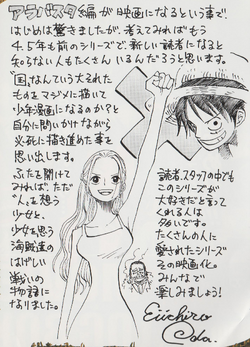 アラバスタ編が映画になるという事で
はじめは驚きましたが、考えてみればもう
4、5年も前のシリーズで、新しい読者になると
知らない人もたくさんいるんだろうと思います。
"国"なんていう大それた
ものをマジメに描いて
少年漫画になるのか?と
自分に問いかけながら
必死に描き進めた事を
思い出します。
ふたを開けて
みれば、ただ
"人"を想う
少女と、
少女を思う
海賊達の
はげしい
戦いの
物語に
なりました。
読者、スタッフの中でも
このシリーズが
大好きだと言って
くれる人は
多いです。
たくさんの人に
愛されたシリーズ
その映画化。
みんなで
楽しみましょう!
Eiichiro
Oda.